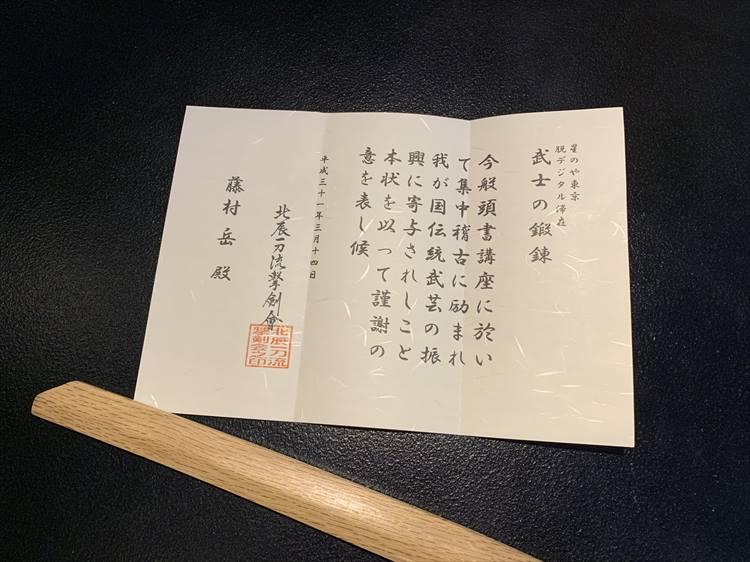 星のや東京
脱デジタル滞在
武士の鍛錬
今般頭書講座に於い
て集中稽古に励まれ
我が国伝統武芸の振
興に寄与されしこと
本状を以って謹謝の
意を表し候
平成三十一年三月十四日
北辰一刀流撃剣會
北辰一刀流
撃剣会之印
藤村岳殿